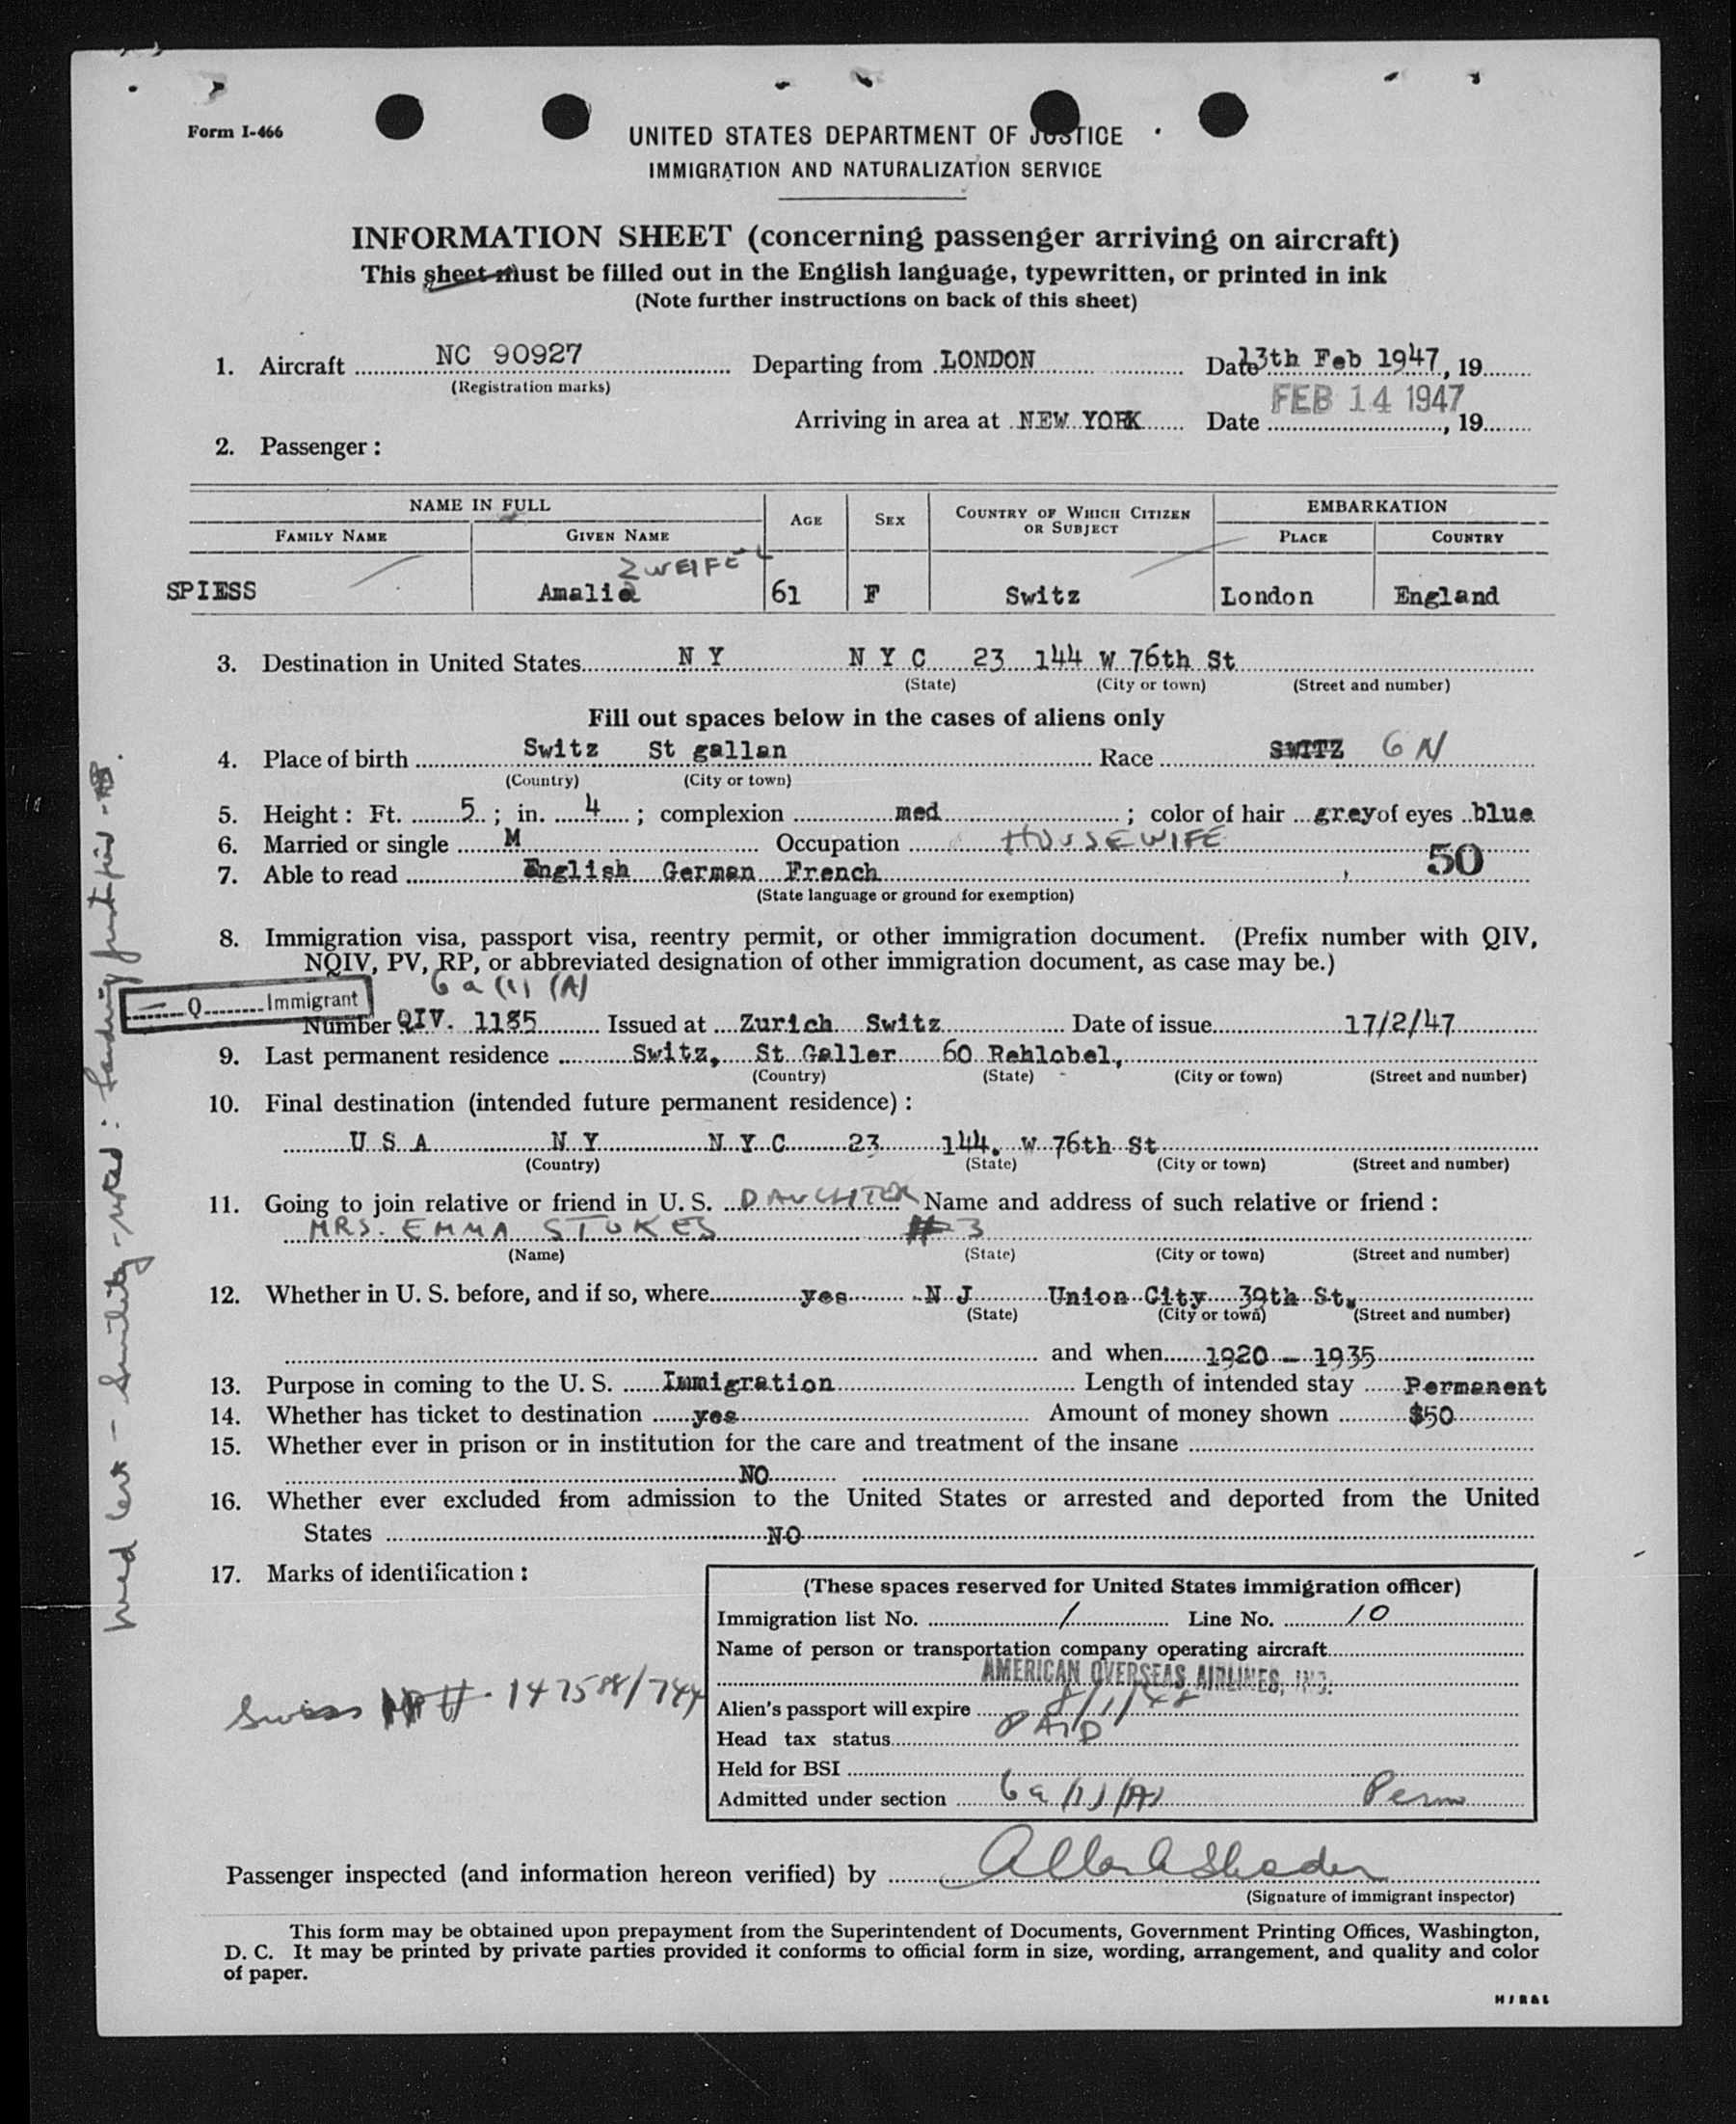 Form I-466
UNITED STATES DEPARTMENT OF JUSTICE
IMMIGRATION AND NATURALIZATION SERVICE
INFORMATION SHEET (concerning passenger arriving on aircraft)
This sheet must be filled out in the English language, typewritten, or printed in ink
(Note further instructions on back of this sheet)
1. Aircraft NC 90927 Departing from LONDON Date 13th Feb 1947, 19
(Registration marks)
FEB 14 1947
Arriving in area at NEW YORK Date , 19
2. Passenger:
NAME IN FULL AGE SEX COUNTRY OF WHICH CITIZEN OR SUBJECT EMBARKATION
FAMILY NAME GIVEN NAME PLACE COUNTRY
ZWEIFEL
SPIESS Amalia 61 F Switz London England
3. Destination in United States N Y N Y C 23 144 W 76th St
(State) (City or town) (Street and number)
Fill out spaces below in the cases of aliens only
4. Place of birth Switz St gallan Race SWITZ GN
(Country) (City or town)
5. Height: Ft. 5; in. 4; complexion med; color of hair grey of eyes blue
6. Married or single M Occupation HOUSEWIFE
50
7. Able to read English German French
(State language or ground for exemption)
8. Immigration visa, passport visa, reentry permit, or other immigration document. (Prefix number with QIV,
NQIV, PV, RP, or abbreviated designation of other immigration document, as case may be.)
6 a (1) (A)
Q Immigrant
Number QIV. 1185 Issued at Zurich Switz Date of issue 17/2/47
9. Last permanent residence Switz, St Galler 60 Rehlobel,
(Country) (State) (City or town) (Street and number)
10. Final destination (intended future permanent residence):
U S A N Y N Y C 23 144. W 76th St
(Country) (State) (City or town) (Street and number)
11. Going to join relative or friend in U. S. DAUGHTER Name and address of such relative or friend:
MRS. EMMA STOKES # 3
(Name) (State) (City or town) (Street and number)
12. Whether in U. S. before, and if so, where yes N J Union City 39th St.
(State) (City or town) (Street and number)
and when 1920 - 1935
13. Purpose in coming to the U. S. Immigration Length of intended stay Permanent
14. Whether has ticket to destination yes Amount of money shown $50
15. Whether ever in prison or in institution for the care and treatment of the insane
NO
16. Whether ever excluded from admission to the United States or arrested and deported from the United
States NO
17. Marks of identification:
(These spaces reserved for United States immigration officer)
Immigration list No. 1 Line No. 10
Name of person or transportation company operating aircraft
AMERICAN OVERSEAS AIRLINES, INC.
Swiss
Alien's passport will expire 8/1/48
Head tax status PAID
Held for BSI
Admitted under section 6a (1) (A) Perm
Passenger inspected (and information hereon verified) by
(Signature of immigrant inspector)
This form may be obtained upon prepayment from the Superintendent of Documents, Government Printing Offices, Washington,
D. C. It may be printed by private parties provided it conforms to official form in size, wording, arrangement, and quality and color
of paper.
med cert - Senility - noted: